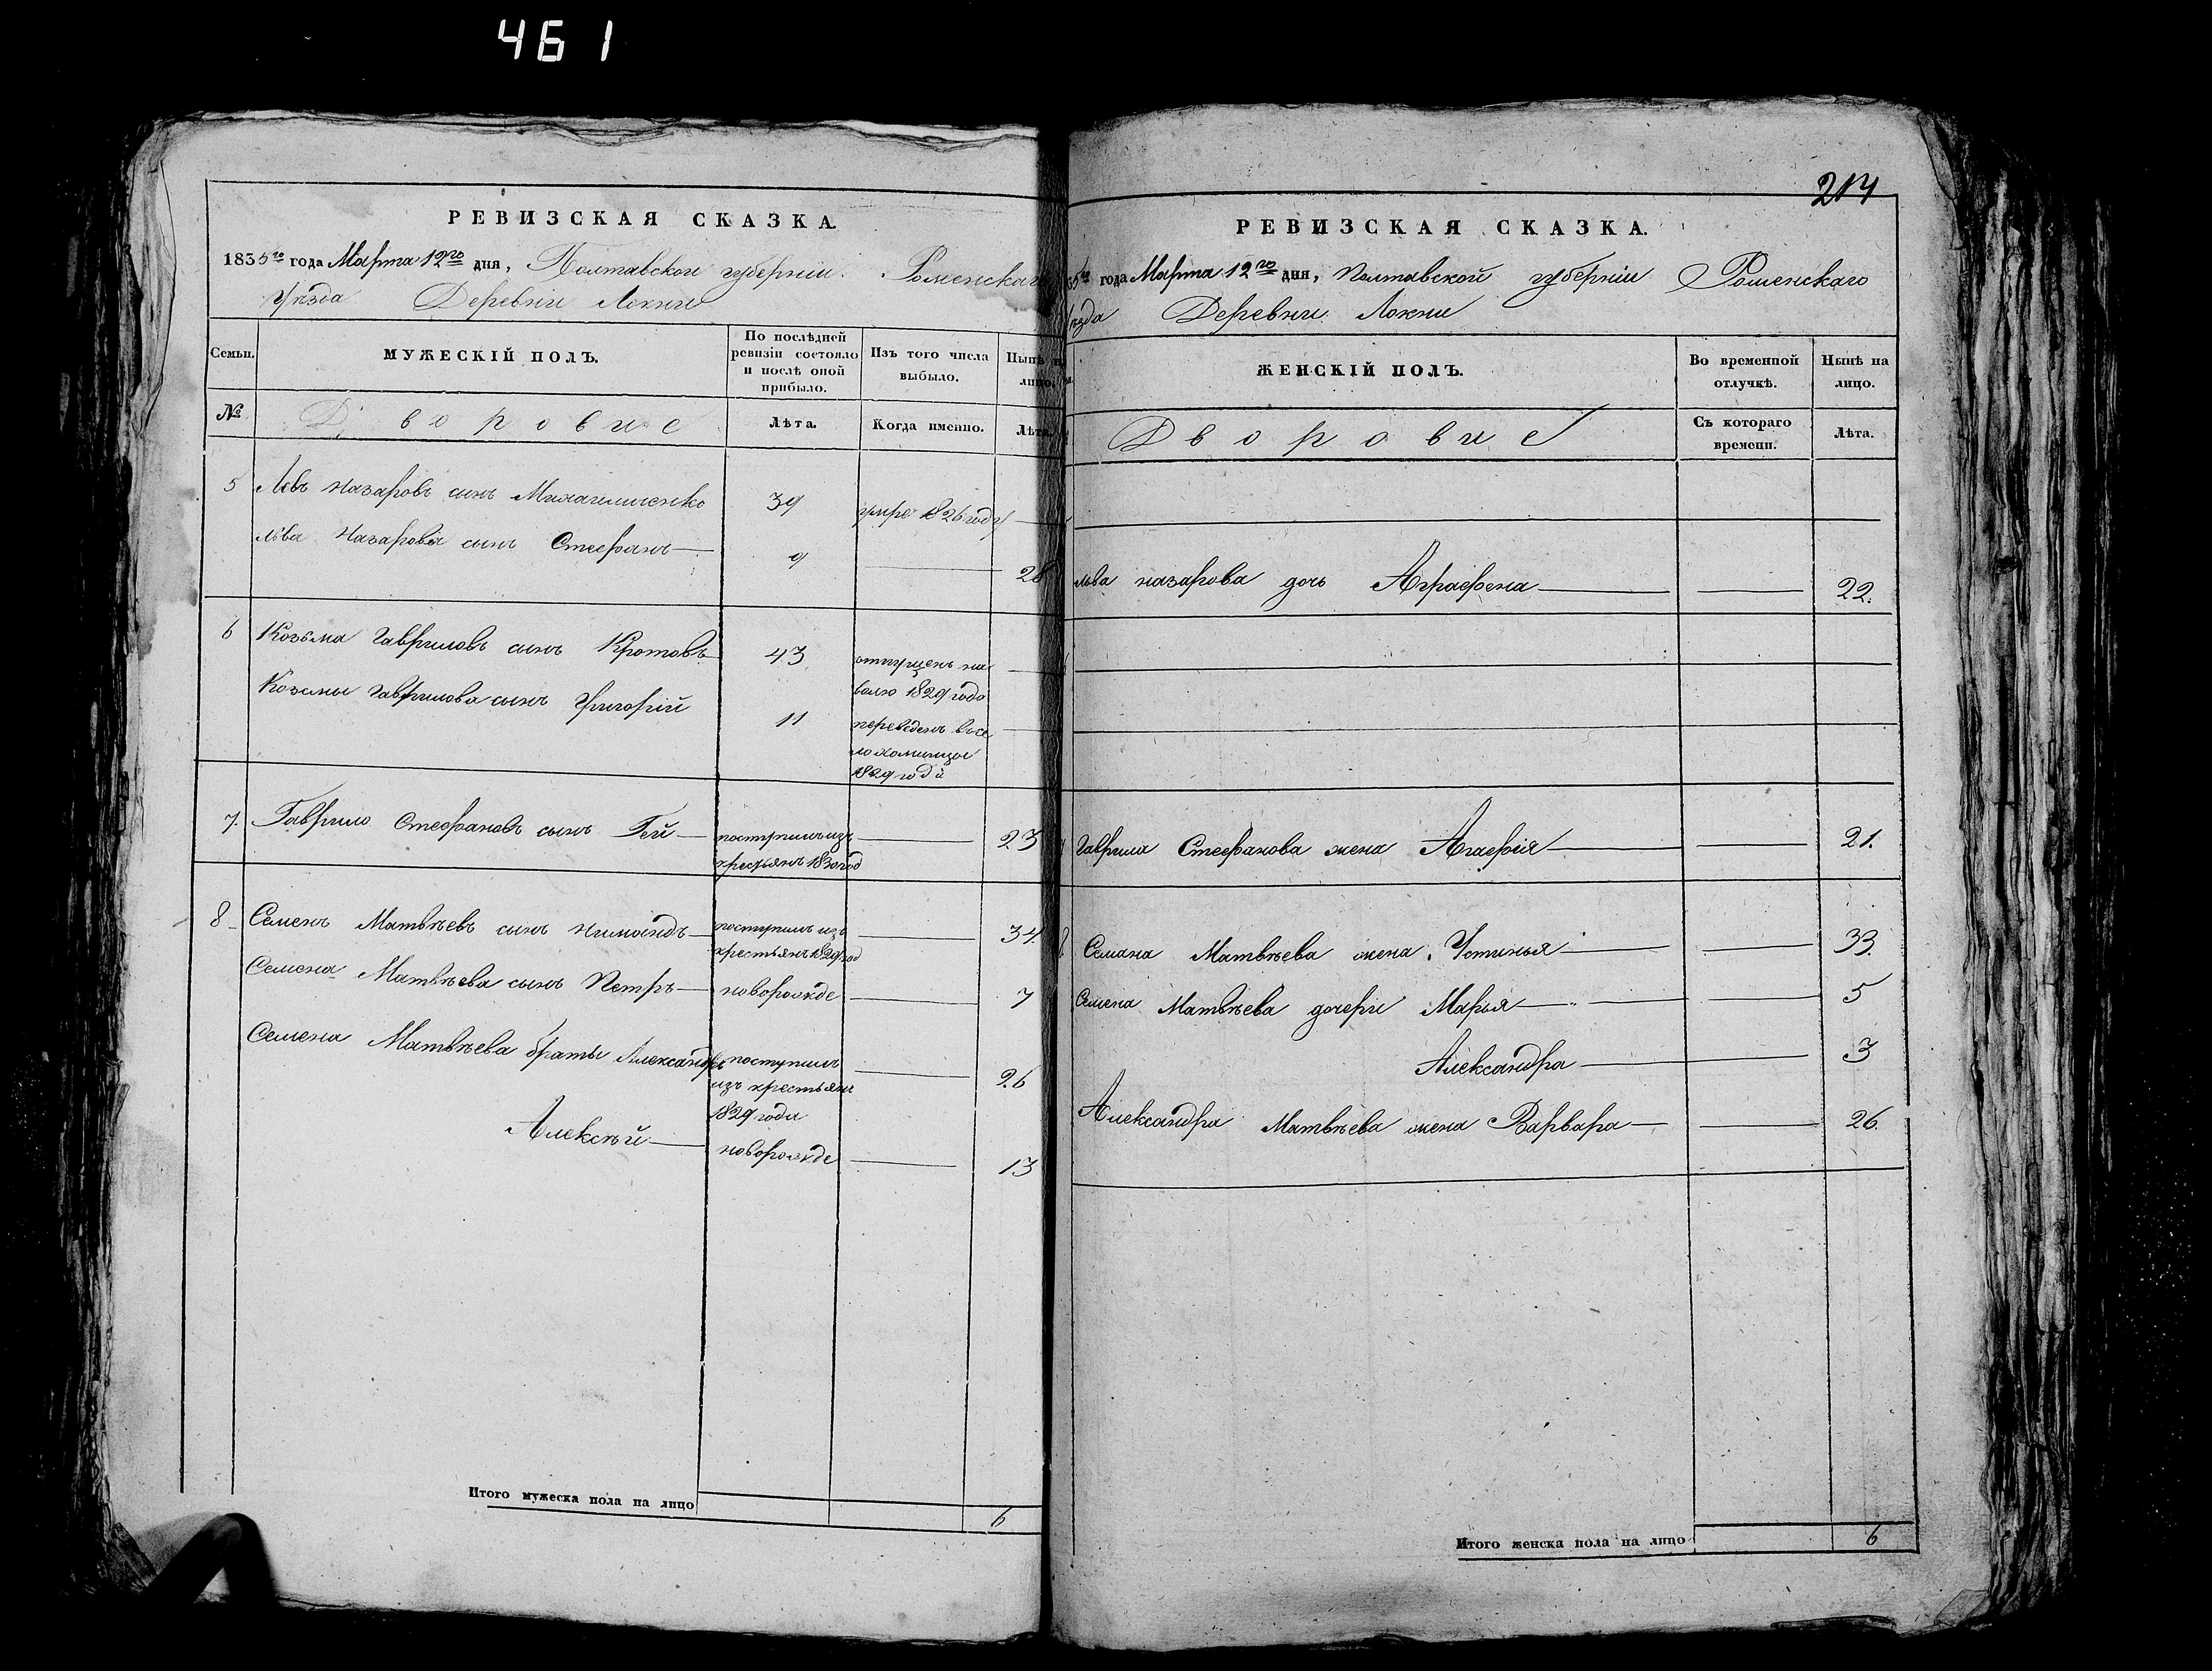 461
РЕВИЗСКАЯ СКАЗКА.
1835го года Марта 12го дня, Полтавской губернии Роменскаго
уѣзда Деревни Локни
Семьи. МУЖЕСКІЙ ПОЛЪ. По послѣдней ревизіи состояло и послѣ оной прибыло. Изъ того числа выбыло. Нынѣ на лицо.
№ Дворовие Лѣта. Когда именно. Лѣта.
5 Левъ Назаровъ сынъ 39 умре 1826 году
Льва Назарова сынъ Стефанъ 9 28
6 Козьма Гавриловъ сынъ Кротовъ 43 отпущенъ на
волю 1829 года
Козьмы Гаврилова сынъ Григорій 11 переведенъ въ се
ло
1829 году
7. Гаврило Стефановъ сынъ Гей поступилъ изъ 23
крестьянъ 1830 год
8 Семенъ Матвѣевъ сынъ поступилъ изъ 34
крестьянъ 1829 год
Семена Матвѣева сынъ Петръ новорожде 7
Семена Матвѣева браты Александръ поступилъ 26
изъ крестьянъ
1829 года
Алексѣй новорожде 13
Итого мужеска пола на лицо 6
214
РЕВИЗСКАЯ СКАЗКА.
35го года Марта 12го дня, Полтавской губерніи Роменскаго
уѣзда Деревни Локни
ЖЕНСКІЙ ПОЛЪ. Во временной отлучкѣ. Нынѣ на лицо.
Дворовие Съ котораго времени. Лѣта.
Льва Назарова дочь Аграфена 22.
Гаврила Стефанова жена Агафія 21.
8 Семена Матвѣева жена Устинья 33.
Семена Матвѣева дочери Марья 5
Александра 3
Александра Матвѣева жена Варвара 26.
Итого женска пола на лицо 6